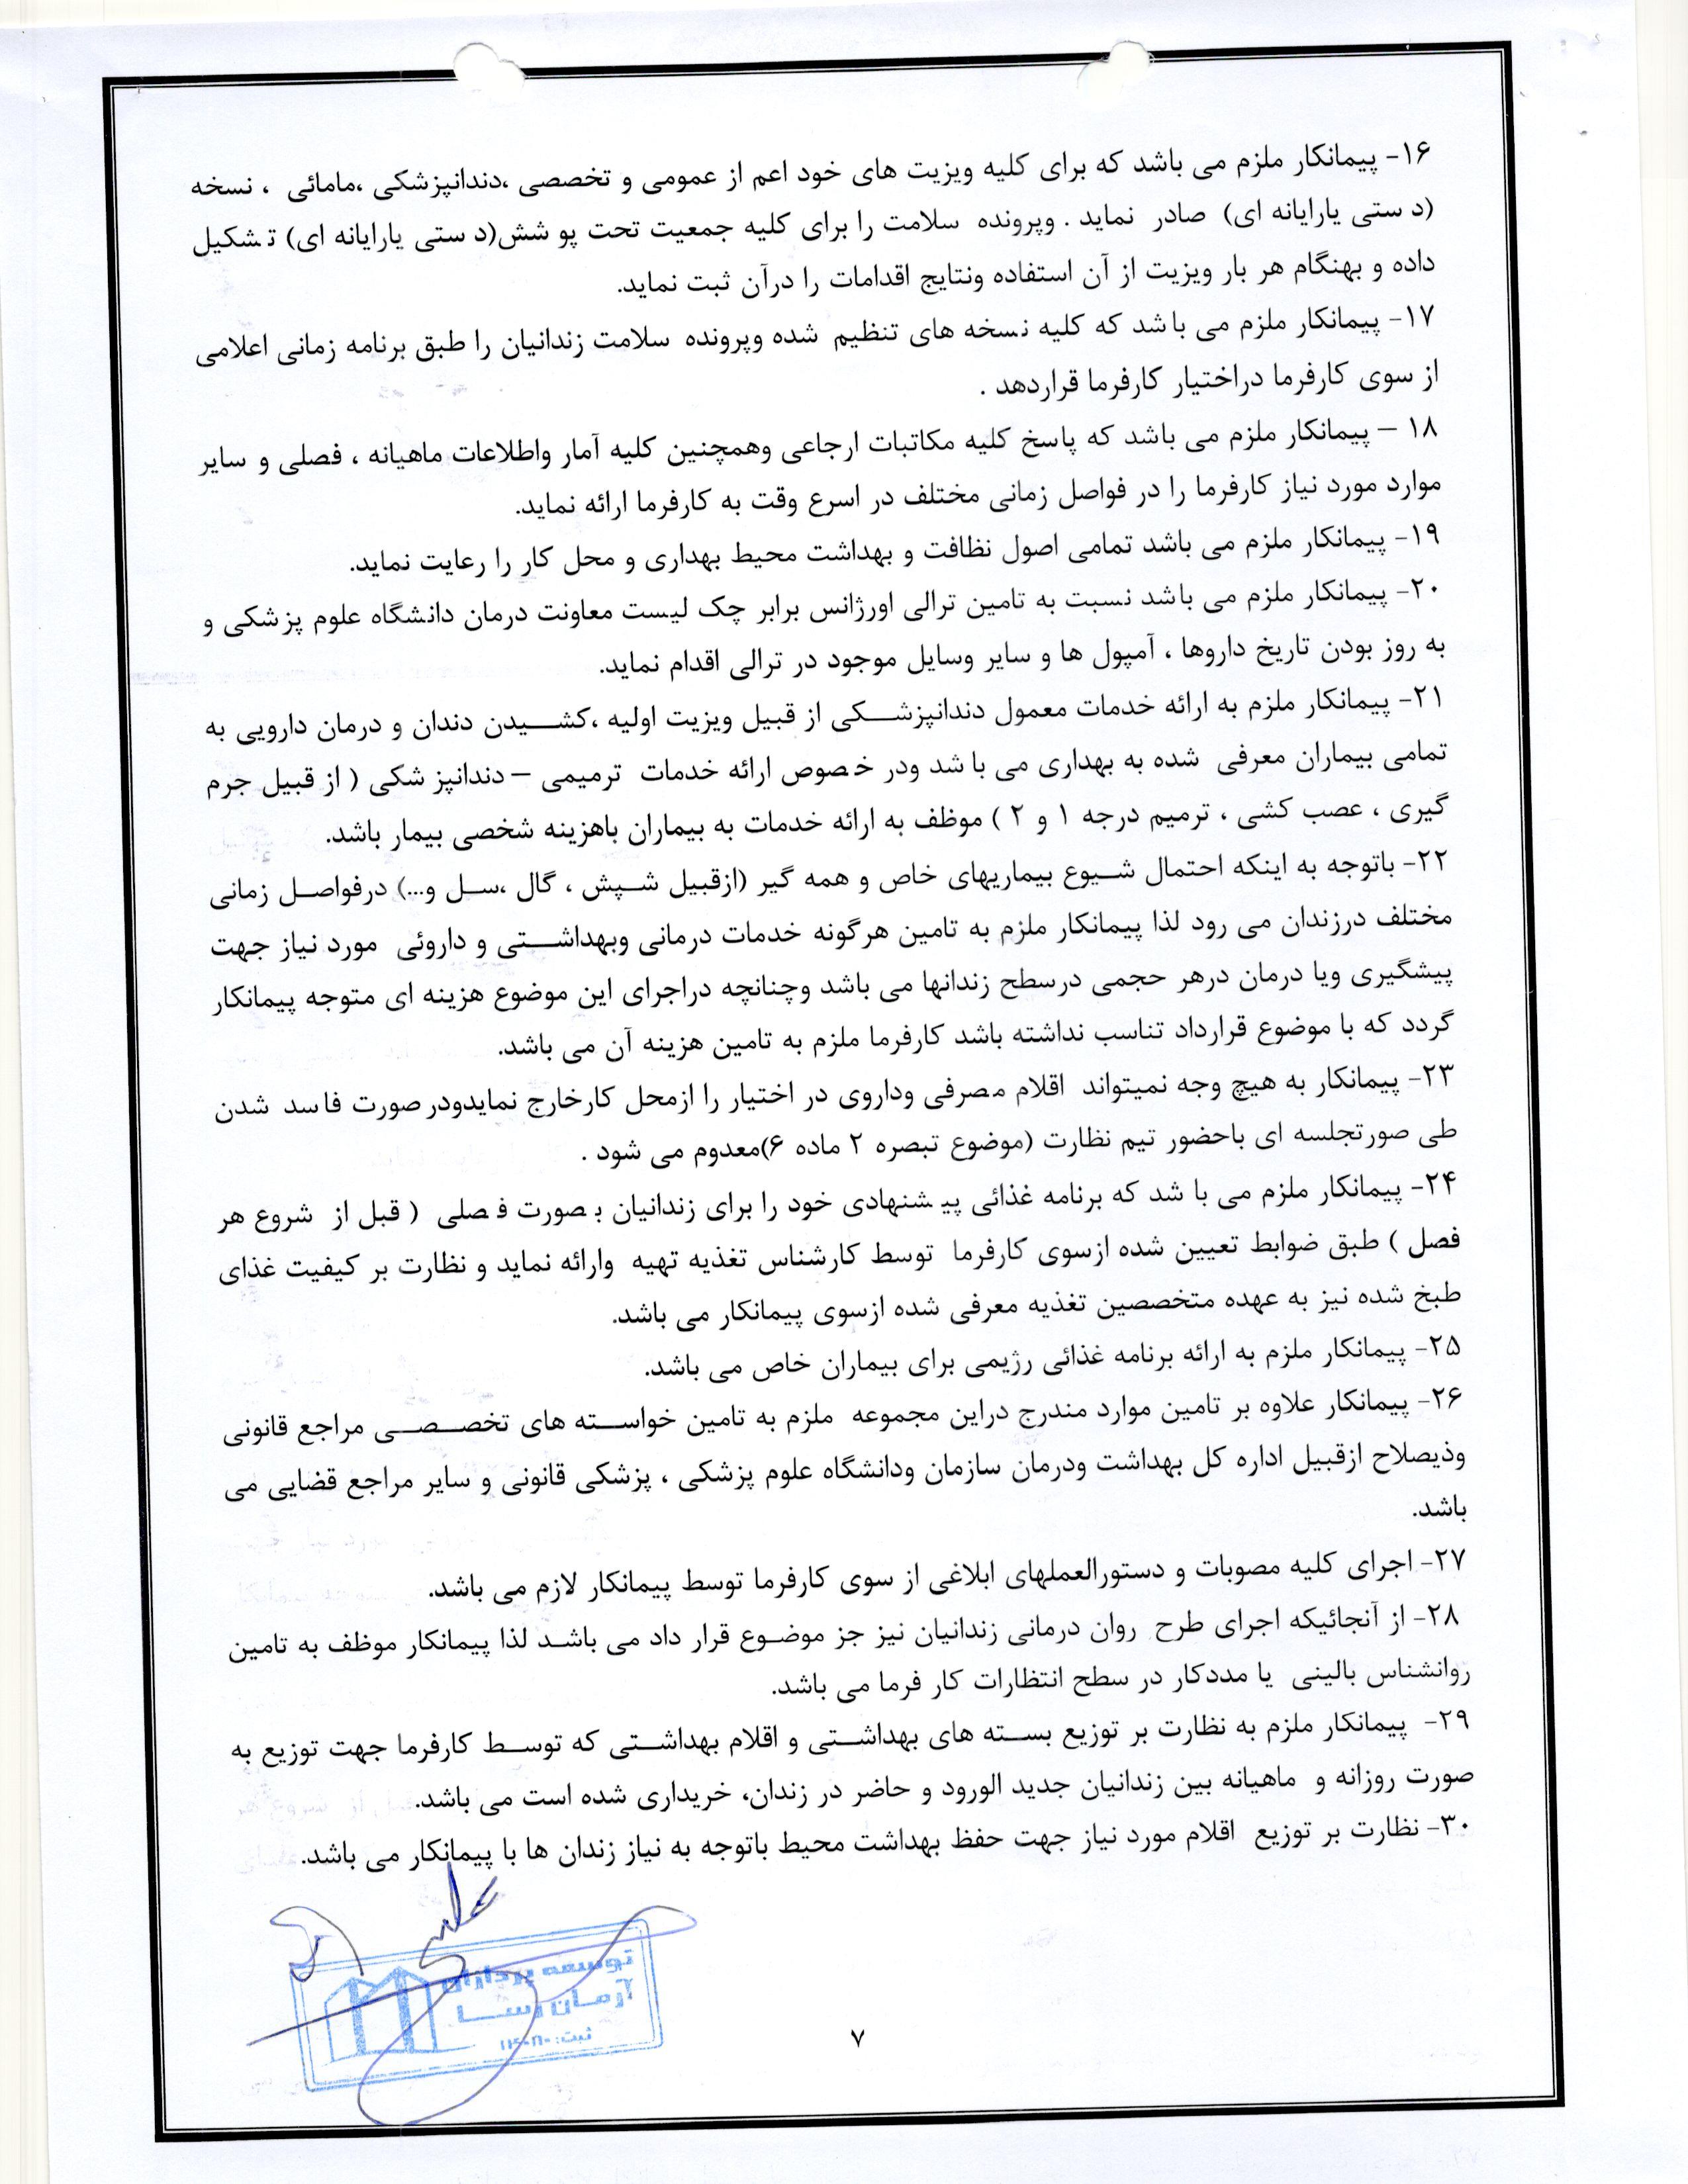 ۱۶- پیمانکار ملزم می باشد که برای کلیه ویزیت های خود اعم از عمومی و تخصصی ،دندانپزشکی ،مامائی ، نسخه
(دستی یارایانه ای) صادر نماید . وپرونده سلامت را برای کلیه جمعیت تحت پوشش(دستی یارایانه ای) تشکیل
داده و بهنگام هر بار ویزیت از آن استفاده ونتایج اقدامات را درآن ثبت نماید.
۱۷- پیمانکار ملزم می باشد که کلیه نسخه های تنظیم شده وپرونده سلامت زندانیان را طبق برنامه زمانی اعلامی
از سوی کارفرما دراختیار کارفرما قراردهد .
۱۸ – پیمانکار ملزم می باشد که پاسخ کلیه مکاتبات ارجاعی وهمچنین کلیه آمار واطلاعات ماهیانه ، فصلی و سایر
موارد مورد نیاز کارفرما را در فواصل زمانی مختلف در اسرع وقت به کارفرما ارائه نماید.
۱۹- پیمانکار ملزم می باشد تمامی اصول نظافت و بهداشت محیط بهداری و محل کار را رعایت نماید.
۲۰- پیمانکار ملزم می باشد نسبت به تامین ترالی اورژانس برابر چک لیست معاونت درمان دانشگاه علوم پزشکی و
به روز بودن تاریخ داروها ، آمپول ها و سایر وسایل موجود در ترالی اقدام نماید.
۲۱- پیمانکار ملزم به ارائه خدمات معمول دندانپزشکی از قبیل ویزیت اولیه ،کشیدن دندان و درمان دارویی به
تمامی بیماران معرفی شده به بهداری می باشد ودر خصوص ارائه خدمات ترمیمی – دندانپزشکی ( از قبیل جرم
گیری ، عصب کشی ، ترمیم درجه ۱ و ۲ ) موظف به ارائه خدمات به بیماران باهزینه شخصی بیمار باشد.
۲۲- باتوجه به اینکه احتمال شیوع بیماریهای خاص و همه گیر (ازقبیل شپش ، گال ،سل و...) درفواصل زمانی
مختلف درزندان می رود لذا پیمانکار ملزم به تامین هرگونه خدمات درمانی وبهداشتی و داروئی مورد نیاز جهت
پیشگیری ویا درمان درهر حجمی درسطح زندانها می باشد وچنانچه دراجرای این موضوع هزینه ای متوجه پیمانکار
گردد که با موضوع قرارداد تناسب نداشته باشد کارفرما ملزم به تامین هزینه آن می باشد.
۲۳- پیمانکار به هیچ وجه نمیتواند اقلام مصرفی وداروی در اختیار را ازمحل کارخارج نمایدودر صورت فاسد شدن
طی صورتجلسه ای باحضور تیم نظارت (موضوع تبصره ۲ ماده ۶)معدوم می شود .
۲۴- پیمانکار ملزم می با شد که برنامه غذائی پیشنهادی خود را برای زندانیان بصورت فصلی ( قبل از شروع هر
فصل ) طبق ضوابط تعیین شده ازسوی کارفرما توسط کارشناس تغذیه تهیه وارائه نماید و نظارت بر کیفیت غذای
طبخ شده نیز به عهده متخصصین تغذیه معرفی شده ازسوی پیمانکار می باشد.
۲۵- پیمانکار ملزم به ارائه برنامه غذائی رژیمی برای بیماران خاص می باشد.
۲۶- پیمانکار علاوه بر تامین موارد مندرج دراین مجموعه ملزم به تامین خواسته های تخصصی مراجع قانونی
وذیصلاح ازقبیل اداره کل بهداشت ودرمان سازمان ودانشگاه علوم پزشکی ، پزشکی قانونی و سایر مراجع قضایی می
باشد.
۲۷- اجرای کلیه مصوبات و دستورالعملهای ابلاغی از سوی کارفرما توسط پیمانکار لازم می باشد.
۲۸- از آنجائیکه اجرای طرح روان درمانی زندانیان نیز جز موضوع قرار داد می باشد لذا پیمانکار موظف به تامین
روانشناس بالینی یا مددکار در سطح انتظارات کار فرما می باشد.
۲۹- پیمانکار ملزم به نظارت بر توزیع بسته های بهداشتی و اقلام بهداشتی که توسط کارفرما جهت توزیع به
صورت روزانه و ماهیانه بین زندانیان جدید الورود و حاضر در زندان، خریداری شده است می باشد.
۳۰- نظارت بر توزیع اقلام مورد نیاز جهت حفظ بهداشت محیط باتوجه به نیاز زندان ها با پیمانکار می باشد.
توسعه پردازان
آرمان رسا
ثبت:
۷